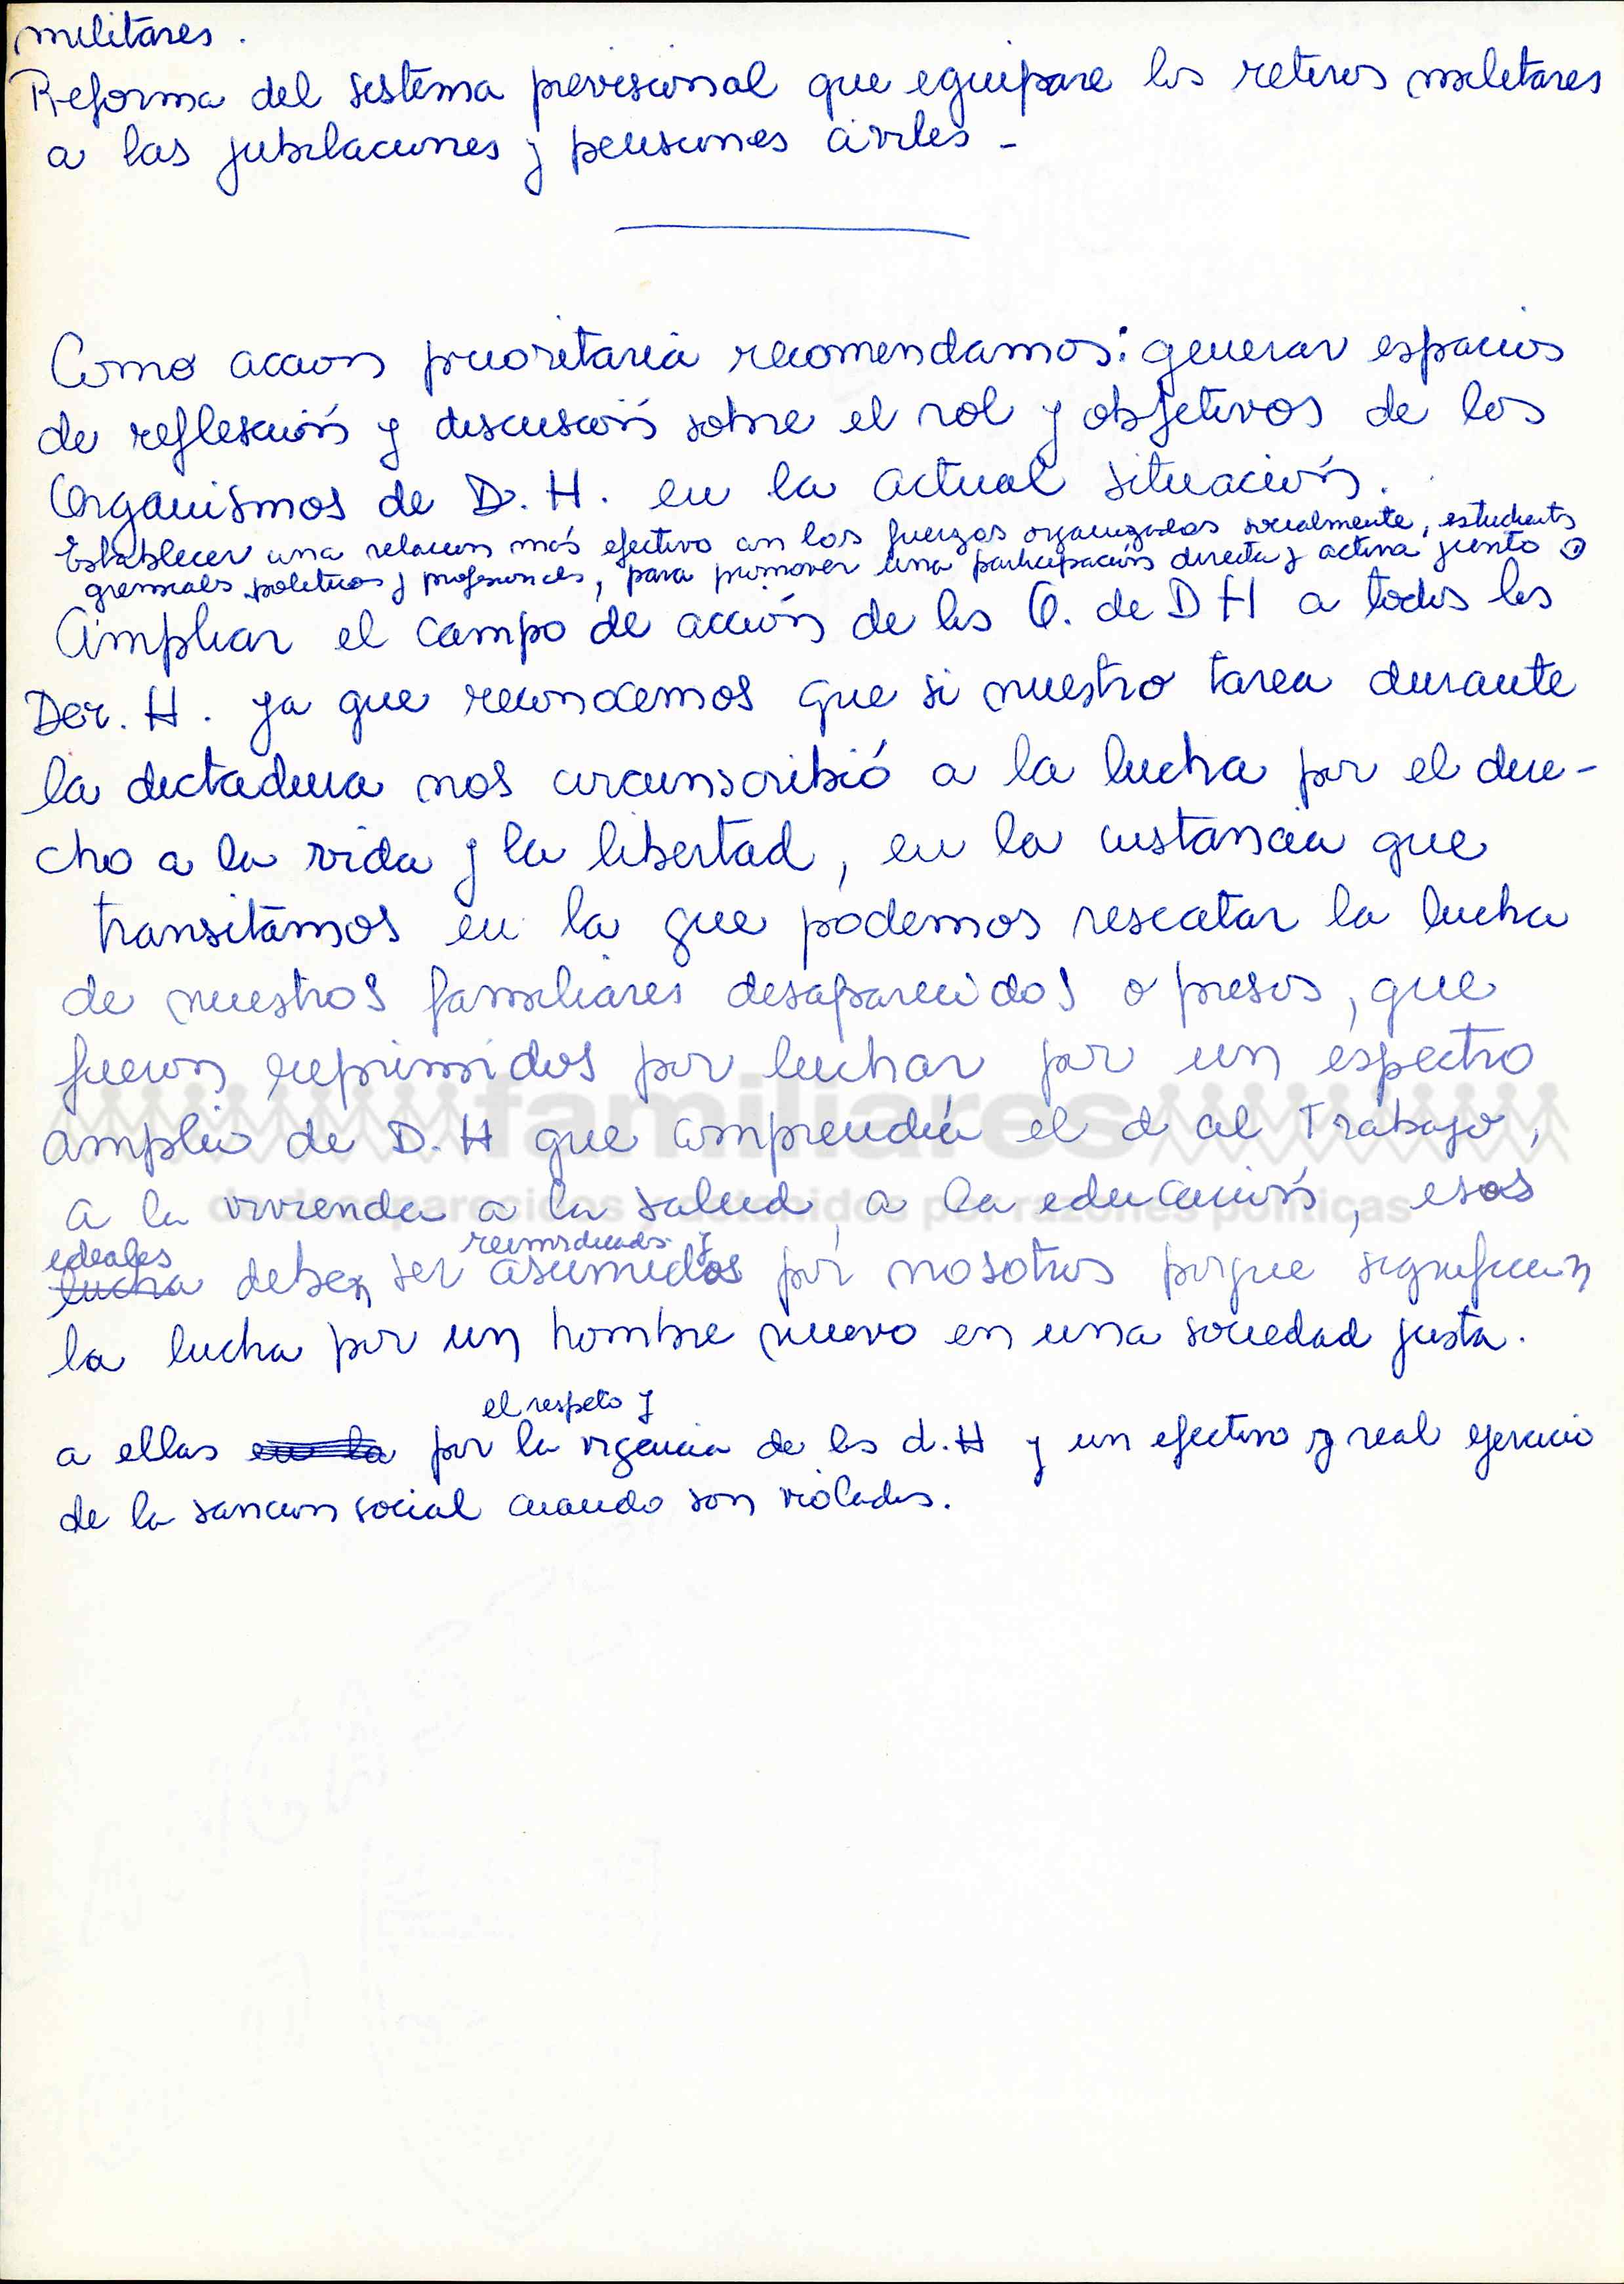 militares.
Reforma del sistema previsional que equipare los retiros militares
a las jubilaciones y pensiones civiles -
Como accion prioritaria recomendamos: generar espacios
de reflexión y discusión sobre el rol y objetivos de los
Organismos de D. H. en la actual situación.
Establecer una relacion más efectivo con los fuerzas organizadas socialmente, estudiants
gremials politicos y profesionals, para promover una participación directa y activa junto
Ampliar el campo de acción de los O. de D H a todos los
Der. H. ya que reconocemos que si nuestro tarea durante
la dictadura nos circunscribió a la lucha por el dere-
cho a la vida y la libertad, en la instancia que
transitamos en la que podemos rescatar la lucha
de nuestros familiares desaparecidos o presos, que
fueron reprimidos por luchar por un espectro
amplio de D. H que comprendía el d al Trabajo,
a la vivienda a la salud, a la educación, esos
ideales reivindicados y
lucha deben ser asumidos por nosotros porque significan
la lucha por un hombre nuevo en una sociedad justa.
el respeto y
a ellas en la por la vigencia de los d. H y un efectivo y real ejercicio
de la sancion social cuando son violados.
familiares
de desaparecidos y detenidos por razones políticas